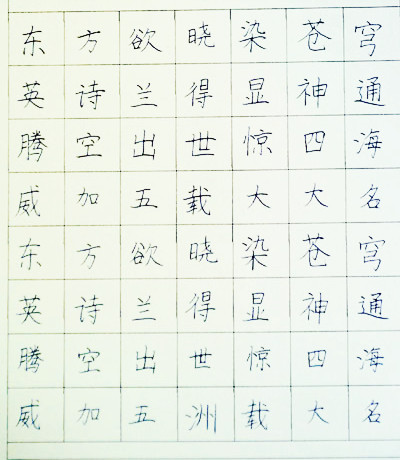 东方欲晓染苍穹
英诗兰得显神通
腾空出世惊四海
威加五载大大名
东方欲晓染苍穹
英诗兰得显神通
腾空出世惊四海
威加五洲载大名